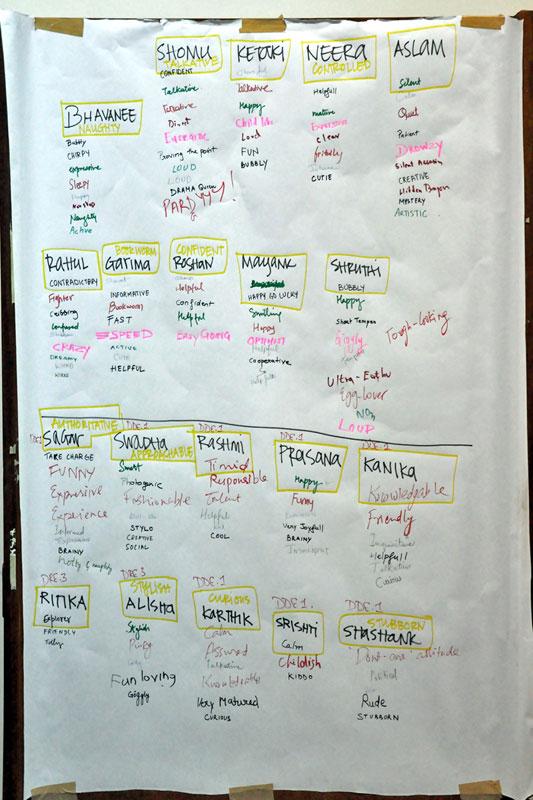 SHOMU
TALKATIVE
CONFIDENT
Talkative
Talkative
LOUD
LOUD
DRAMA Queen
KETAKI
Talkative
Happy
Child like
Loud
FUN
BUBBLY
NEERA
CONTROLLED
Helpfull
mature
Clear
friendly
CUTIE
ASLAM
Silent
Quiet
Patient
DROWZY
Silent Assassin
CREATIVE
Hidden Dragon
MYSTERY
ARTISTIC
BHAVANEE
NAUGHTY
Bubbly
CHIRPY
expressive
Sleepy
Naughty
Active
RAHUL
CONTRADICTERY
Fighter
Confused
CRAZY
DREAMY
WIRED
BOOKWORM
GARIMA
INFORMATIVE
Bookworm
FAST
SPEED
ACTIVE
CUTE
HELPFUL
CONFIDENT
ROSHAN
Helpful
Confident
Helpful
EASY GOING
MAYANK
HAPPY GO LUCKY
Smiling
Happy
OPTIMIST
Helpful
Cooperative
SHRUTHI
BUBBLY
Happy
Short Temper
Giggly
Tough-looking
Egg-lover
LOUD
AUTHORITATIVE
SAGAR
TAKE CHARGE
FUNNY
Expressive
Experience
Informed
Expressive
BRAINY
DDE.1
SWADHA
APPROACHABLE
Smart
Photogenic
Fashionable
STYLO
CREATIVE
SOCIAL
DDE.1
RASHMI
Timid
Responsible
Talent
Helpful
COOL
DDE.1
PRASANA
Happy
Funny
Very Joyfull
BRAINY
KANIKA
Knowledgable
Friendly
Inquisitive
Helpfull
Talkative
Curious
DRE.3
RITIKA
Explorer
FRIENDLY
DRE 3
STYLISH
ALISHA
Stylish
Fun loving
Giggly
DDE.1
CURIOUS
KARTHIK
Calm
Assured
Talkative
Very Matured
CURIOUS
DDE 1.
SRISHTI
Calm
Childish
KIDDO
DDE.1
STUBBORN
SHASHANK
Dont-care attitude
Political
Rude
STUBBORN